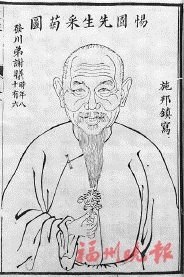 惕園先生采蒭圖
癸川弟謝驥時年八十有六
施邦鎮寫
福州晚報